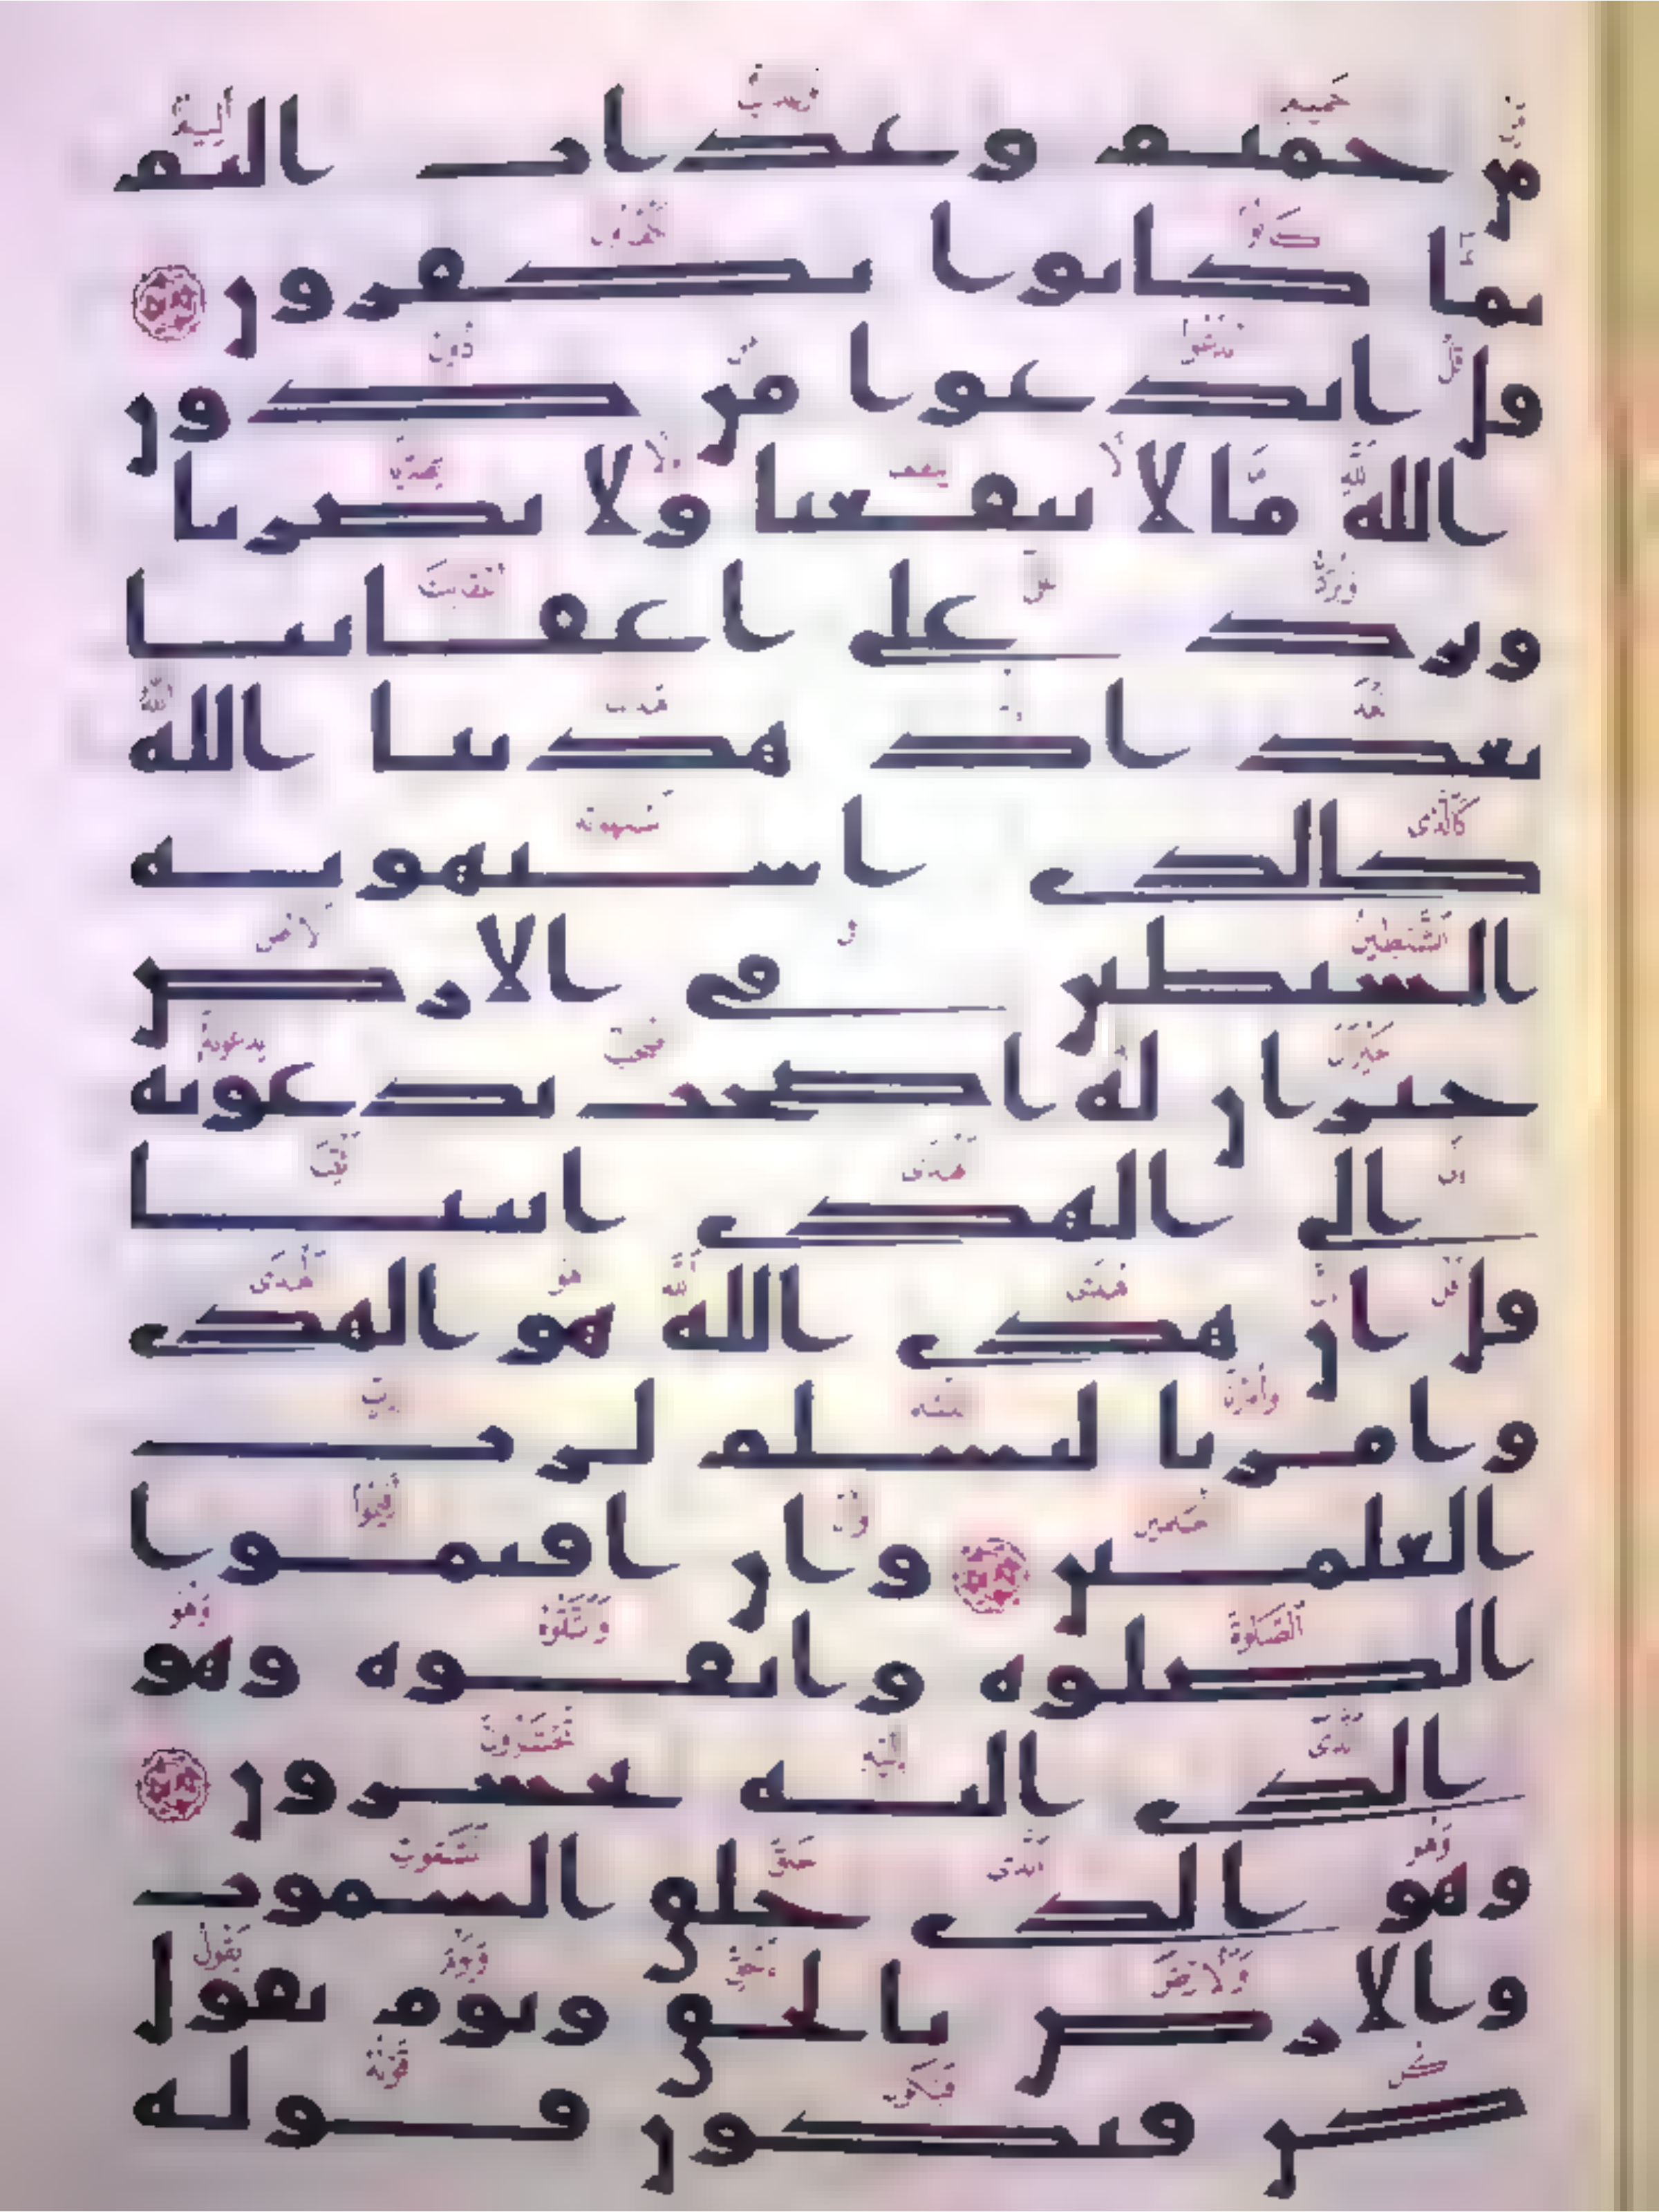 من حميم وعذاب اليم
بما كانوا يكفرون
قل اندعوا من دون
الله ما لا ينفعنا ولا يضرنا
ونرد على اعقابنا
بعد اذ هدىنا الله
كالذي استهوته
الشيطين في الارض
حيران له اصحب يدعونه
الى الهدى ائتنا
قل ان هدى الله هو الهدى
وامرنا لنسلم لرب
العلمين وان اقيموا
الصلوة واتقوه وهو
الذي اليه تحشرون
وهو الذي خلق السموت
والارض بالحق ويوم يقول
كن فيكون قوله